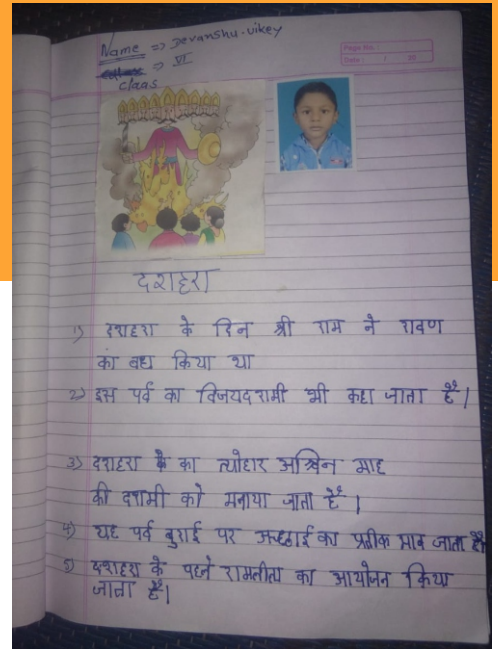 Name => Devanshu.uikey
Page No. :
Date : / 20
=> VI
claas
दशहरा
1) दशहरा के दिन श्री राम ने रावण
का बध किया था
2) इस पर्व का विजयदशमी भी कहा जाता है।
3) दशहरा के का त्योहार अश्विन माह
की दशमी को मनाया जाता है।
4) यह पर्व बुराई पर अच्छाई का प्रतीक माव जाता है
5) दशहरा के पहने रामलीला का आयोजन किया
जाता है।